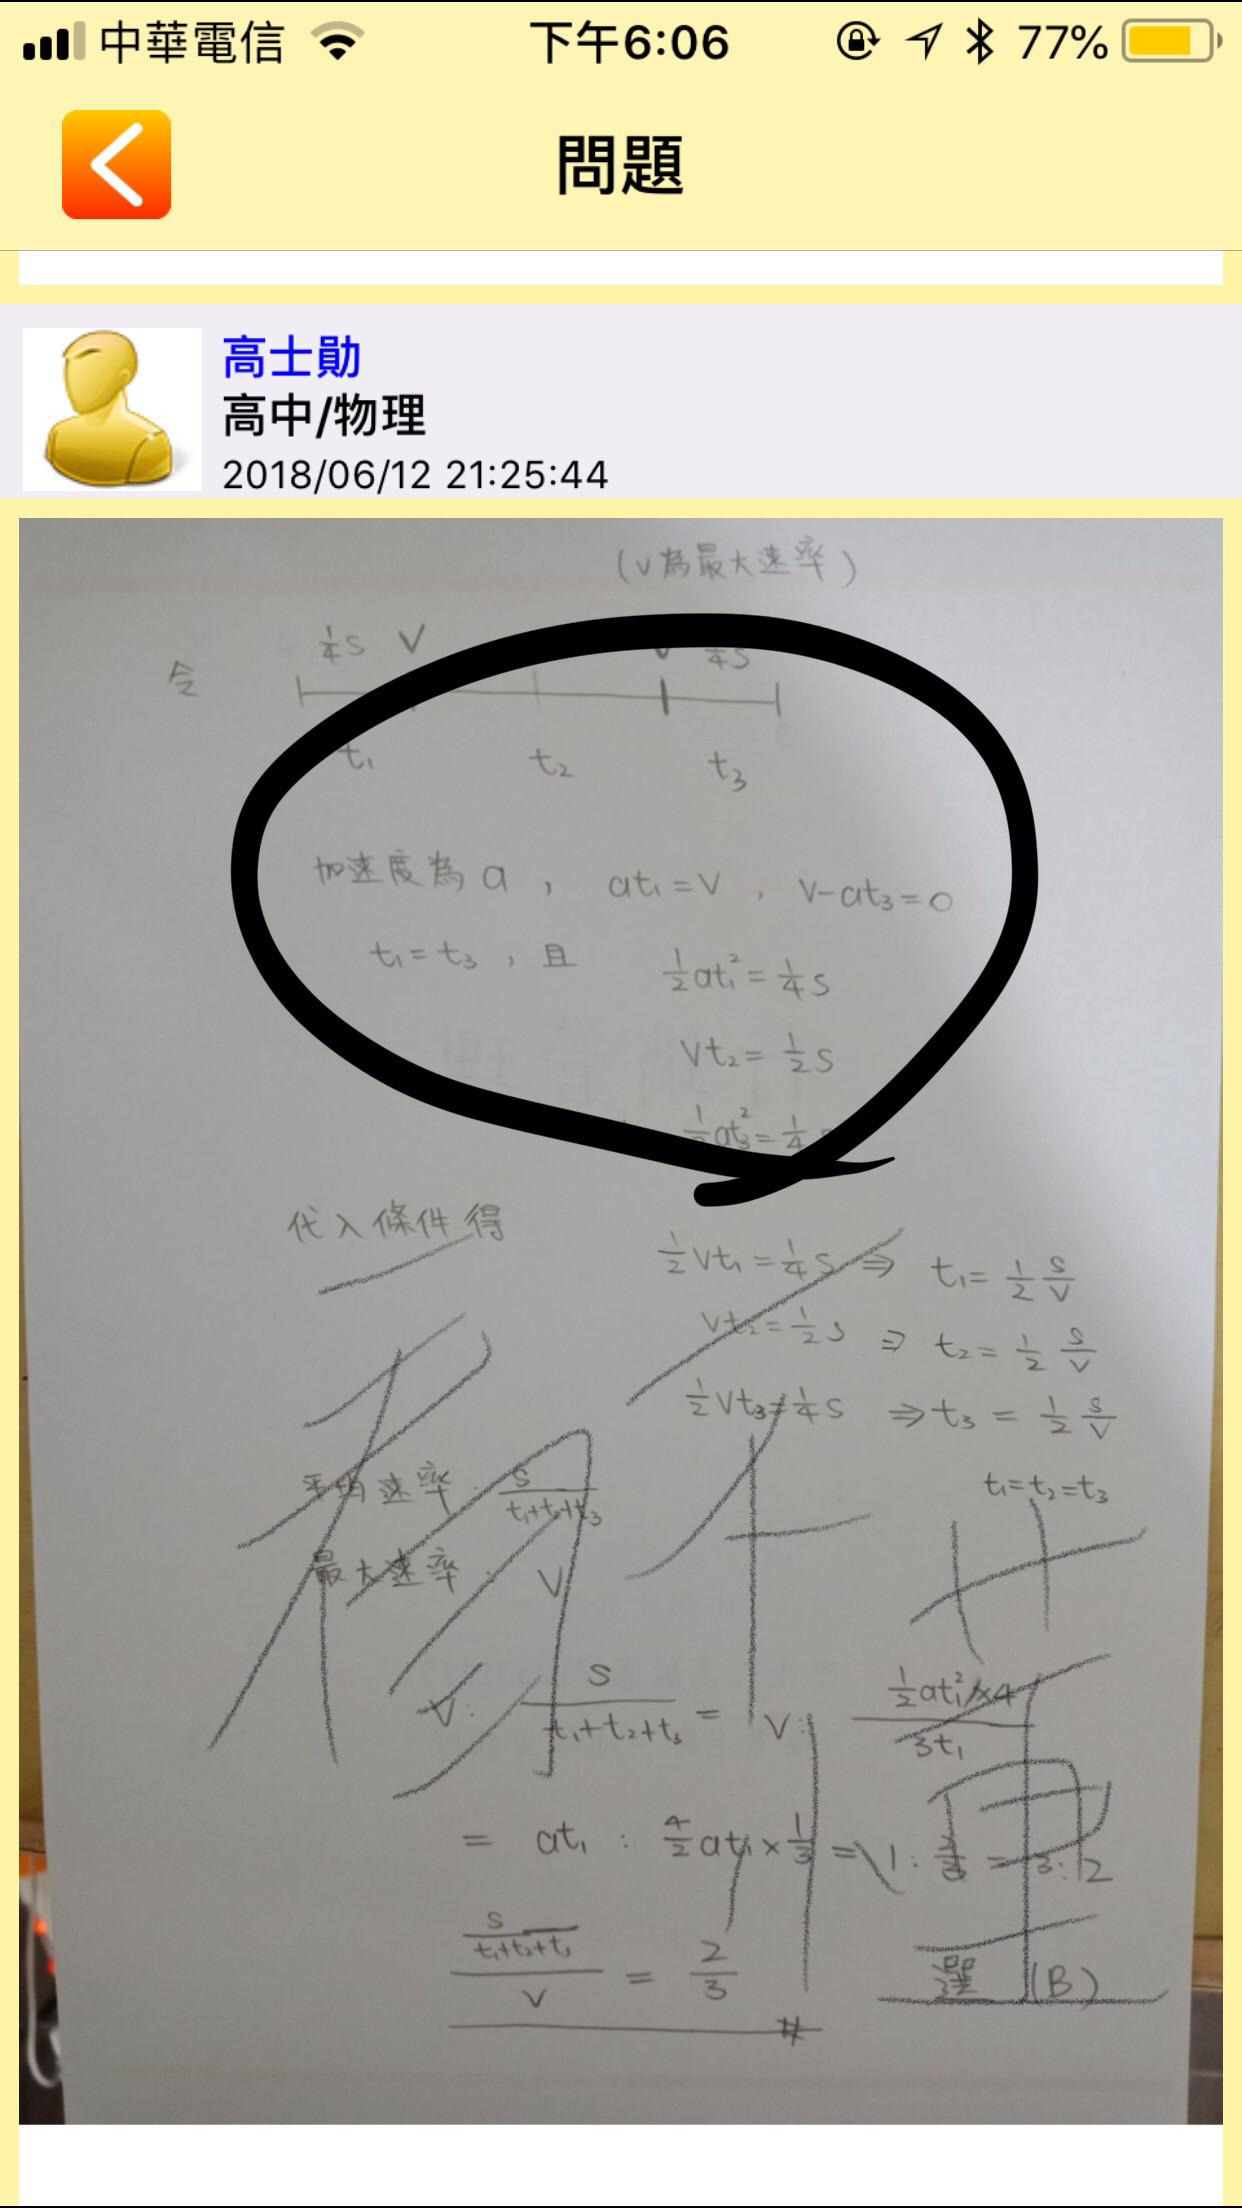 中華電信 下午6:06 77%
問題
高士勛
高中/物理
2018/06/12 21:25:44
(v為最大速率)
1/4 s V 1/4 s
令
t₁ t₂ t₃
加速度為 a , at₁ = V , V-at₃=0
t₁ = t₃ , 且 1/2 at₁² = 1/4 s
Vt₂ = 1/2 s
1/2 at₃² = 1/4
代入條件得
1/2 Vt₁ = 1/4 s ⇒ t₁ = 1/2 s/V
Vt₂ = 1/2 s ⇒ t₂ = 1/2 s/V
1/2 Vt₃ = 1/4 s ⇒ t₃ = 1/2 s/V
t₁=t₂=t₃
平均速率: s/(t₁+t₂+t₃)
最大速率: V
V: s/(t₁+t₂+t₃) = V: (1/2 at₁² × 4)/(3t₁)
= at₁ : 4/2 at₁ × 1/3 = 1: 2/3 = 3:2
(s/(t₁+t₂+t₃))/V = 2/3 #
選 (B)